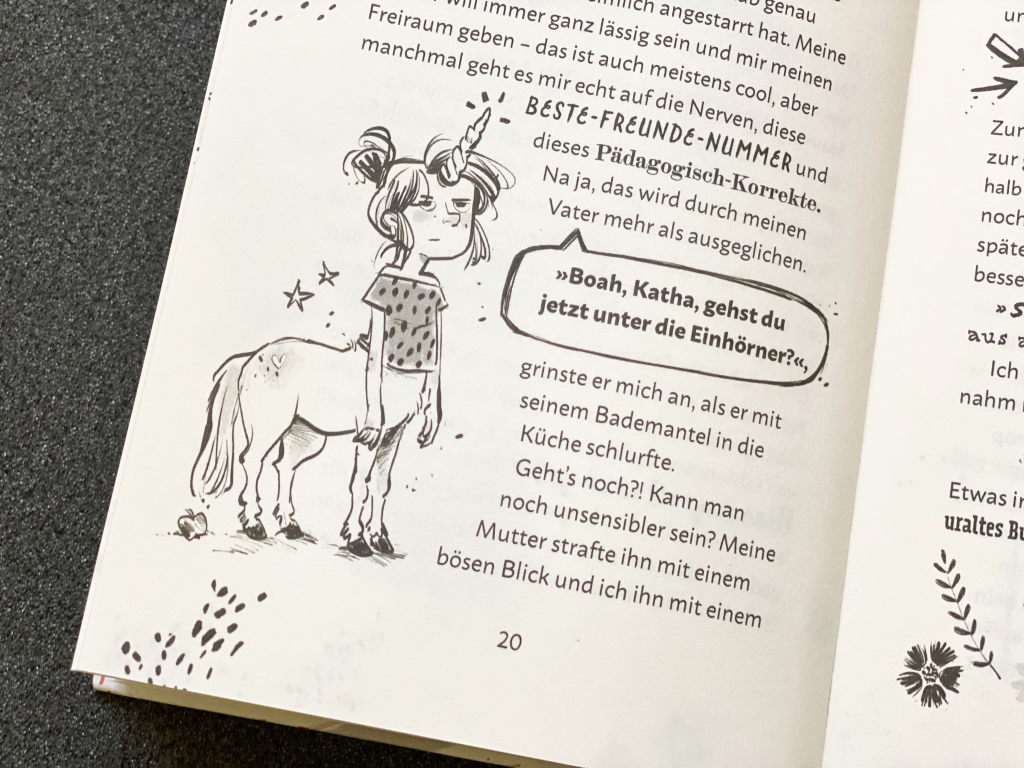 genau
angestarrt hat. Meine
will immer ganz lässig sein und mir meinen
Freiraum geben – das ist auch meistens cool, aber
manchmal geht es mir echt auf die Nerven, diese
BESTE-FREUNDE-NUMMER und
dieses Pädagogisch-Korrekte.
Na ja, das wird durch meinen
Vater mehr als ausgeglichen.
»Boah, Katha, gehst du
jetzt unter die Einhörner?«,
grinste er mich an, als er mit
seinem Bademantel in die
Küche schlurfte.
Geht's noch?! Kann man
noch unsensibler sein? Meine
Mutter strafte ihn mit einem
bösen Blick und ich ihn mit einem
20
Zur
zur
halb
noch
späte
besse
»S
aus
Ich
nahm
Etwas in
uraltes Bu